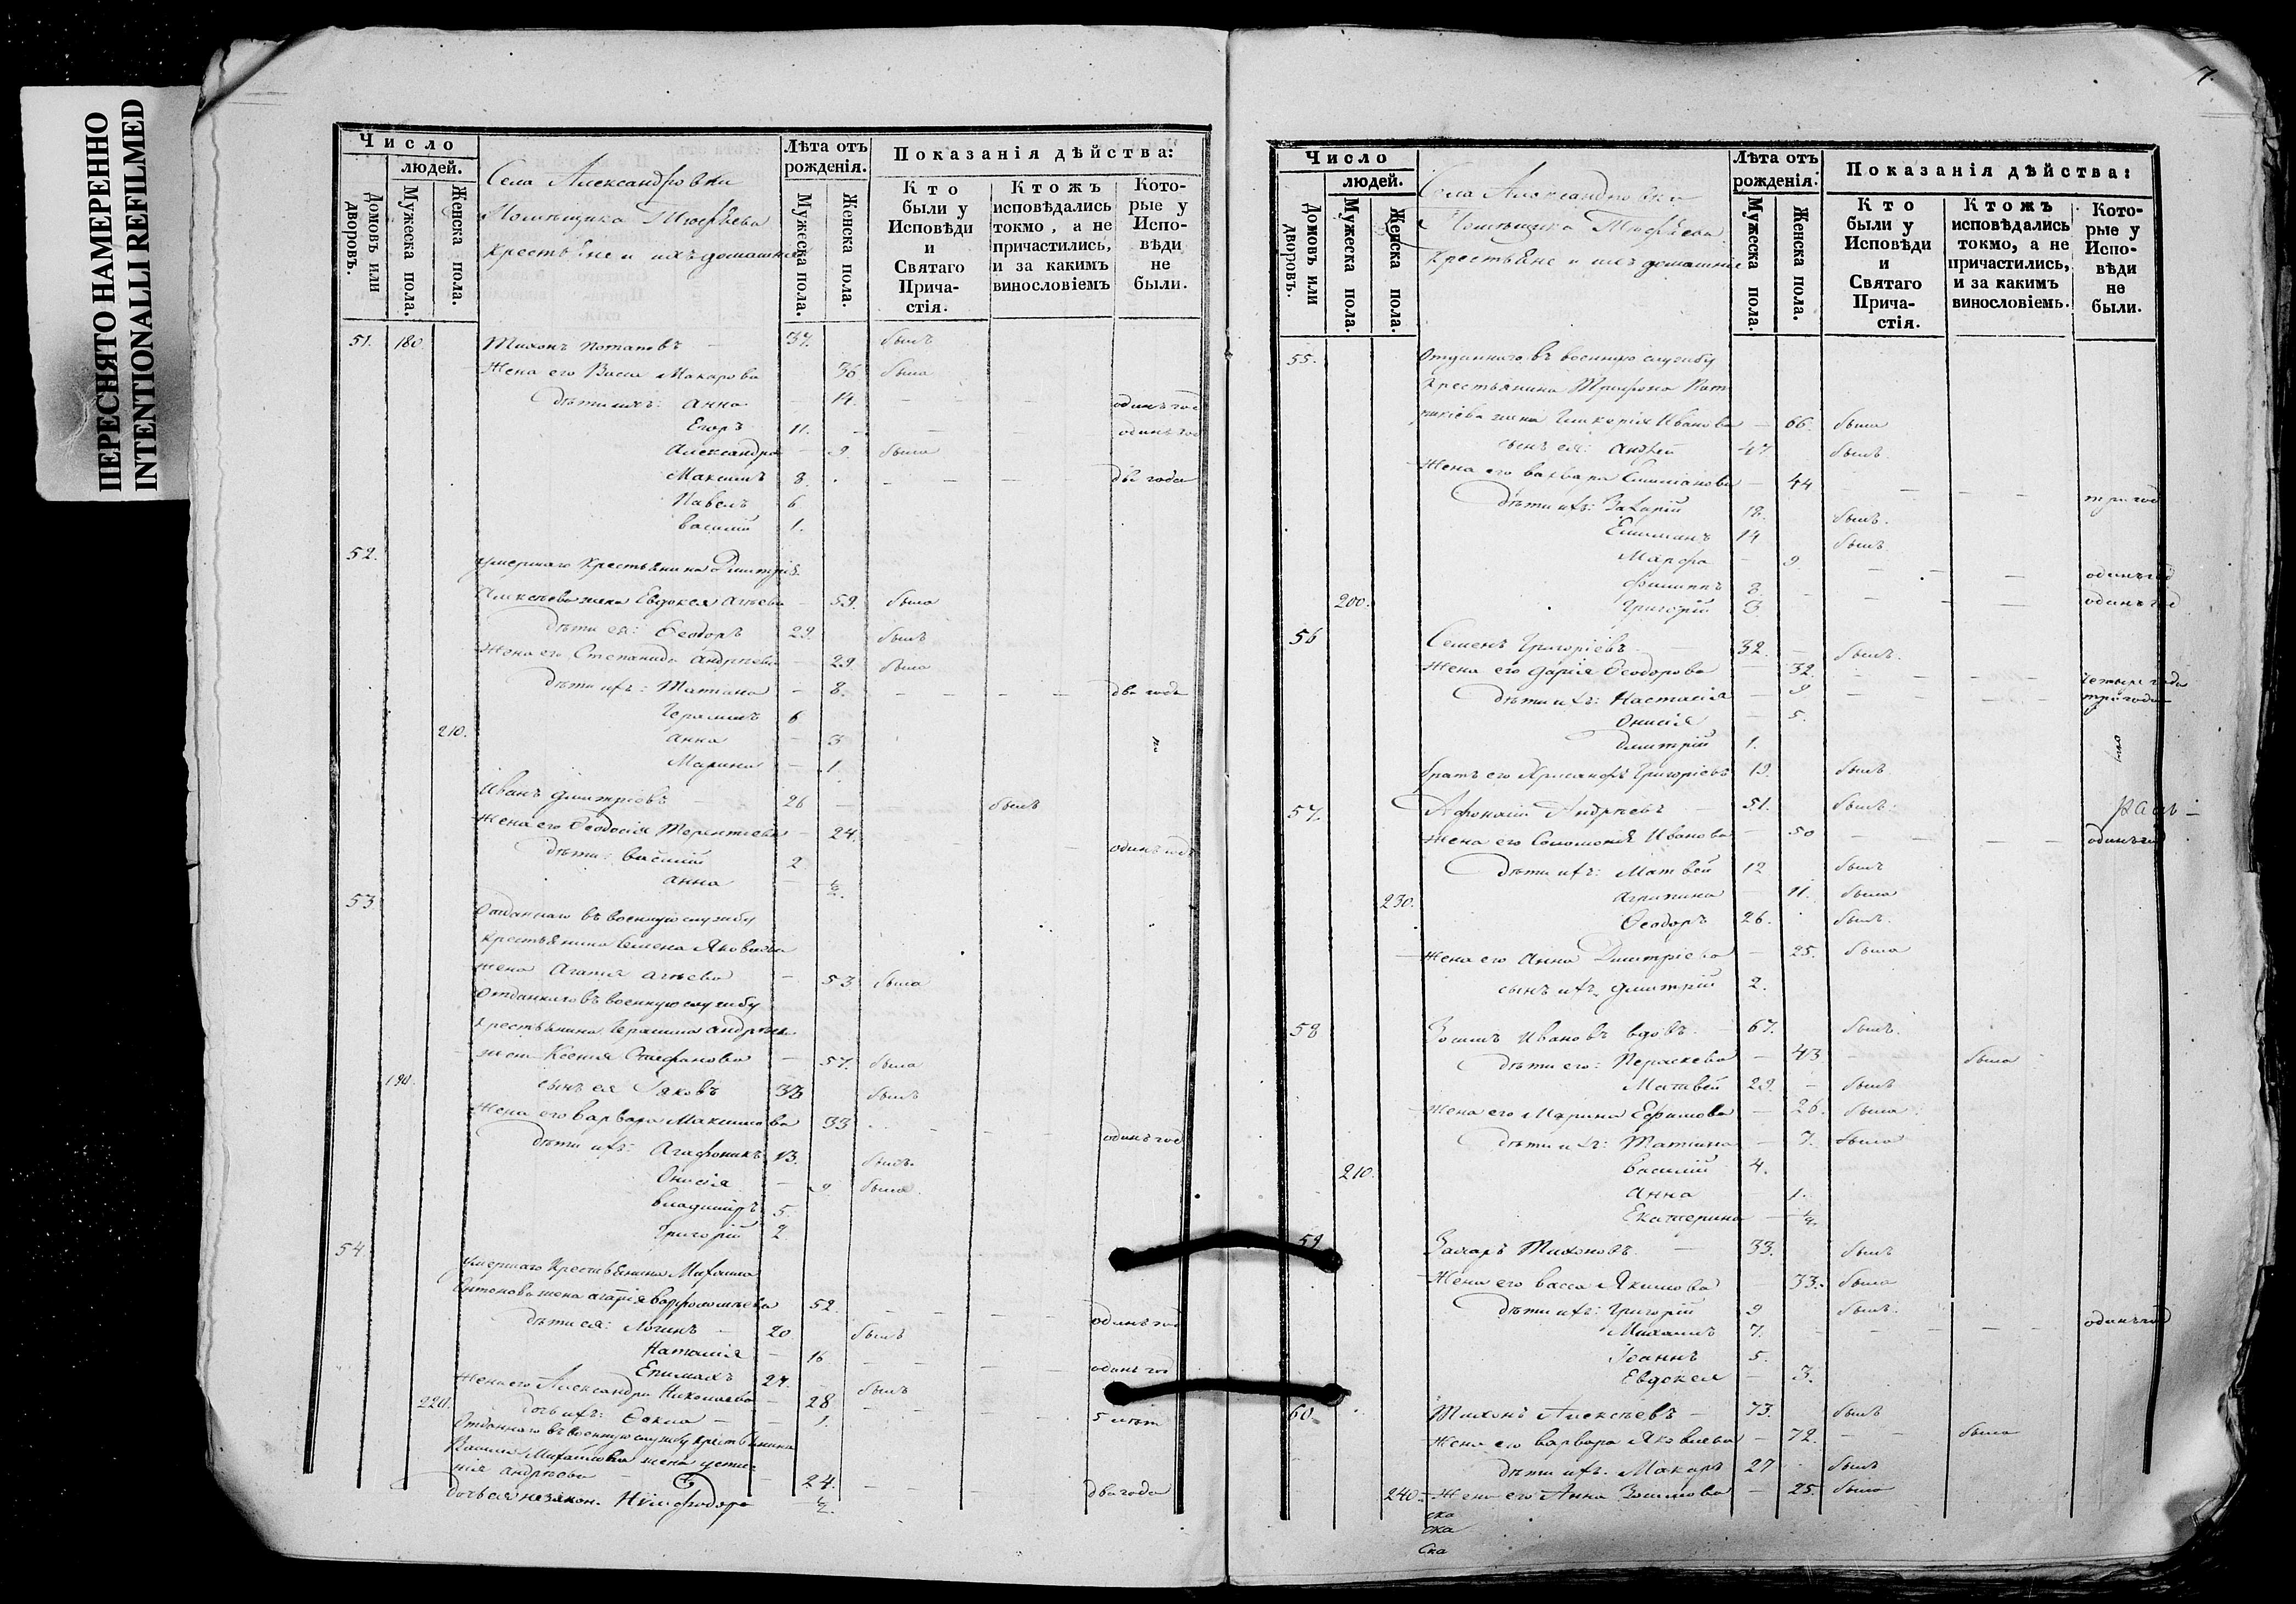 ПЕРЕСНЯТО НАМЕРЕННО
INTENTIONALLI REFILMED
Число
людей.
Домовъ или дворовъ.
Мужеска пола.
Женска пола.
Села Александровки
Помѣщика
крестьяне и ихъ домашніе
Лѣта отъ рожденія.
Мужеска пола.
Женска пола.
Показанія дѣйства:
Кто были у Исповѣди и Святаго Прича-стія.
Ктожъ исповѣдались токмо, а не причастились, и за какимъ винословіемъ
Кото-рые у Испо-вѣди не были.
51. 180 Тихонъ Потаповъ 37. былъ
Жена его Васса Макарова 36 была
дѣти ихъ: Анна 14. одинъ год
Егоръ 11. одинъ год
Александра 9. была
Максимъ 8. два года
Павелъ 6
Василій 1.
52. умершаго крестьянина Димитрія
Алексѣева жена Евдокея 59. была
дѣти ея: Ѳеодоръ 29. былъ
Жена его Степанида Андрѣева 29 была
дѣти ихъ: Татиана 8. два года
Герасимъ 6
210. Анна 3
Марина 1.
Иванъ Дмитріевъ 26 былъ
Жена его Ѳеодосія Терентиева 24. одинъ годъ
дѣти: Василій 2
Анна ½
53 Отданнаго въ военную службу
крестьянина Семена Яковлева
жена Агапія 53. была
Отданнаго въ военную службу
крестьянина Герасима Андрѣева
жена Ксенія Стефанова 57. была
190. сынъ ея Іаковъ 33 былъ
Жена его Варвара Максимова 33 одинъ год
дѣти ихъ: Агафоникъ 13. былъ
Онисія 9. была
Владимиръ 5.
Григорій 2.
54 умершаго крестьянина Михаила
Антонова жена Варфоломѣева 52. одинъ год
дѣти ея: Логинъ 20 былъ
Наталія 16 одинъ год
Епимахъ 27. былъ
Жена его Александра Николаева 28 5 лѣтъ
220. дочь ихъ: Ѳекла 1.
Отданнаго въ военную службу крестьянина
Михайлова жена Усти-
нія Андрѣева 24. два года
дочь ея незакон. Нимфодора ½
7.
Число
людей.
Домовъ или дворовъ.
Мужеска пола.
Женска пола.
Села Александровки
Помѣщика
крестьяне и ихъ домашніе
Лѣта отъ рожденія.
Мужеска пола.
Женска пола.
Показанія дѣйства:
Кто были у Исповѣди и Святаго Прича-стія.
Ктожъ исповѣдались токмо, а не причастились, и за какимъ винословіемъ.
Кото-рые у Испо-вѣди не были.
55. Отданнаго въ военную службу
крестьянина Трифона
жена Гликерія Иванова 66. была
сынъ ея: Андрей 47 былъ.
Жена его Варвара 44 три год
дѣти ихъ: Захарій 18. былъ.
14 былъ
Марфа 9. одинъ год
Филиппъ 8. одинъ год
200. Григорій 3.
56 Семенъ Григоріевъ 32. былъ.
Жена его Дарія Ѳеодорова 32. четыре года
дѣти ихъ: Настасія 9 три года
Онисія 5.
Дмитрій 1.
братъ его Хрисанфъ Григоріевъ 19. былъ
57. Афонасій Андрѣевъ 51. былъ.
Жена его Соломонія Иванова 50 одинъ год
дѣти ихъ: Матвей 12 былъ
230. Агрипина 11. была
Ѳеодоръ 26. былъ.
Жена его Анна Димитріева 25. была
сынъ ихъ Дмитрій 2.
58 Зосимъ Ивановъ вдовъ. 67. былъ.
дѣти его: Параскева 43 была
Матвей 29. былъ
Жена его Марина Ефимова 26. была
дѣти ихъ: Татиана 7. была
210. Василий 4.
Анна 1.
Екатерина ½.
59 Захаръ Тихоновъ 33. былъ
Жена его Васса Якимова 33. была
дѣти ихъ: Григорій 9 былъ.
Михаилъ 7. одинъ год
Іоаннъ 5.
Евдокея 3.
60. Тихонъ Алексѣевъ 73. былъ
Жена его Варвара Яковлева 72. была
дѣти ихъ. Макаръ 27 былъ
240. Жена его Анна Зосимова 25. была
ска
ска
Ска